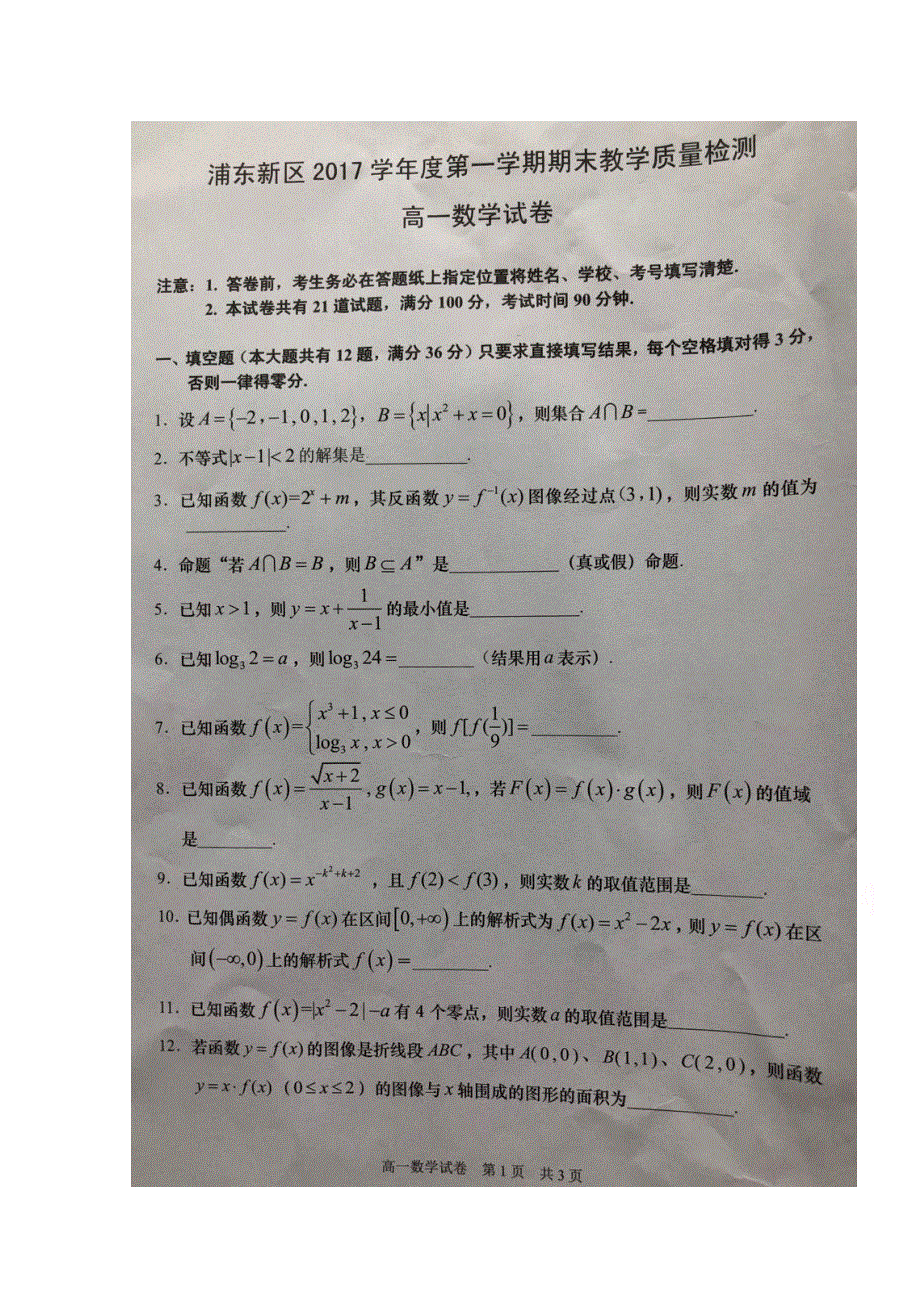 浦东新区 2017 学年度第一学期期末教学质量检测
高一数学试卷
注意：1. 答卷前，考生务必在答题纸上指定位置将姓名、学校、考号填写清楚.
2. 本试卷共有 21 道试题，满分 100 分，考试时间 90 分钟.
一、填空题（本大题共有 12 题，满分 36 分）只要求直接填写结果，每个空格填对得 3 分，
否则一律得零分.
1. 设 A={-2,-1,0,1,2}, B={x|x²+x=0}，则集合 A∩B=__________.
2. 不等式|x-1|<2 的解集是__________.
3. 已知函数 f(x)=2ˣ+m，其反函数 y=f⁻¹(x) 图像经过点(3,1)，则实数 m 的值为
__________.
4. 命题“若 A∩B=B，则 B⊆A”是__________（真或假）命题.
5. 已知 x>1，则 y=x+1/(x-1) 的最小值是__________.
6. 已知 log₃2=a，则 log₃24=________（结果用 a 表示）.
7. 已知函数 f(x)={x³+1, x≤0; log₃x, x>0，则 f[f(1/9)]=________.
8. 已知函数 f(x)=√(x+2)/(x-1), g(x)=x-1,，若 F(x)=f(x)·g(x)，则 F(x) 的值域
是________.
9. 已知函数 f(x)=x^(-k²+k+2)，且 f(2)<f(3)，则实数 k 的取值范围是________.
10. 已知偶函数 y=f(x) 在区间[0,+∞) 上的解析式为 f(x)=x²-2x，则 y=f(x) 在区
间(-∞,0) 上的解析式 f(x)=________.
11. 已知函数 f(x)=|x²-2|-a 有 4 个零点，则实数 a 的取值范围是__________.
12. 若函数 y=f(x) 的图像是折线段 ABC，其中 A(0,0)、B(1,1)、C(2,0)，则函数
y=x·f(x)（0≤x≤2）的图像与 x 轴围成的图形的面积为__________.
高一数学试卷 第 1 页 共 3 页